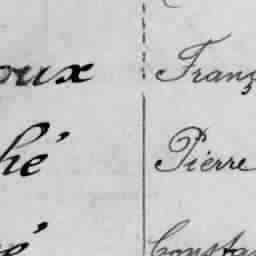 oux Franç
hé Pierre
é Consta